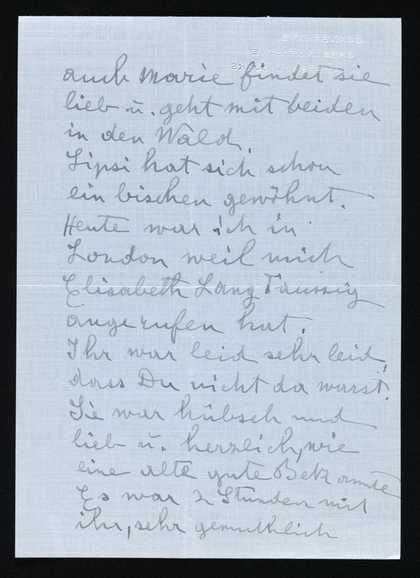 auch Marie findet sie
lieb u. geht mit beiden
in den Wald.
Lipsi hat sich schon
ein bischen gewöhnt.
Heute war ich in
London weil mich
Elisabeth Lang Taussig
angerufen hat.
Ihr war leid sehr leid,
dass Du nicht da warst.
Sie war hübsch und
lieb u. herzlich, wie
eine alte gute Bekannte
Es war 2 Stunden mit
ihr, sehr gemuthlich